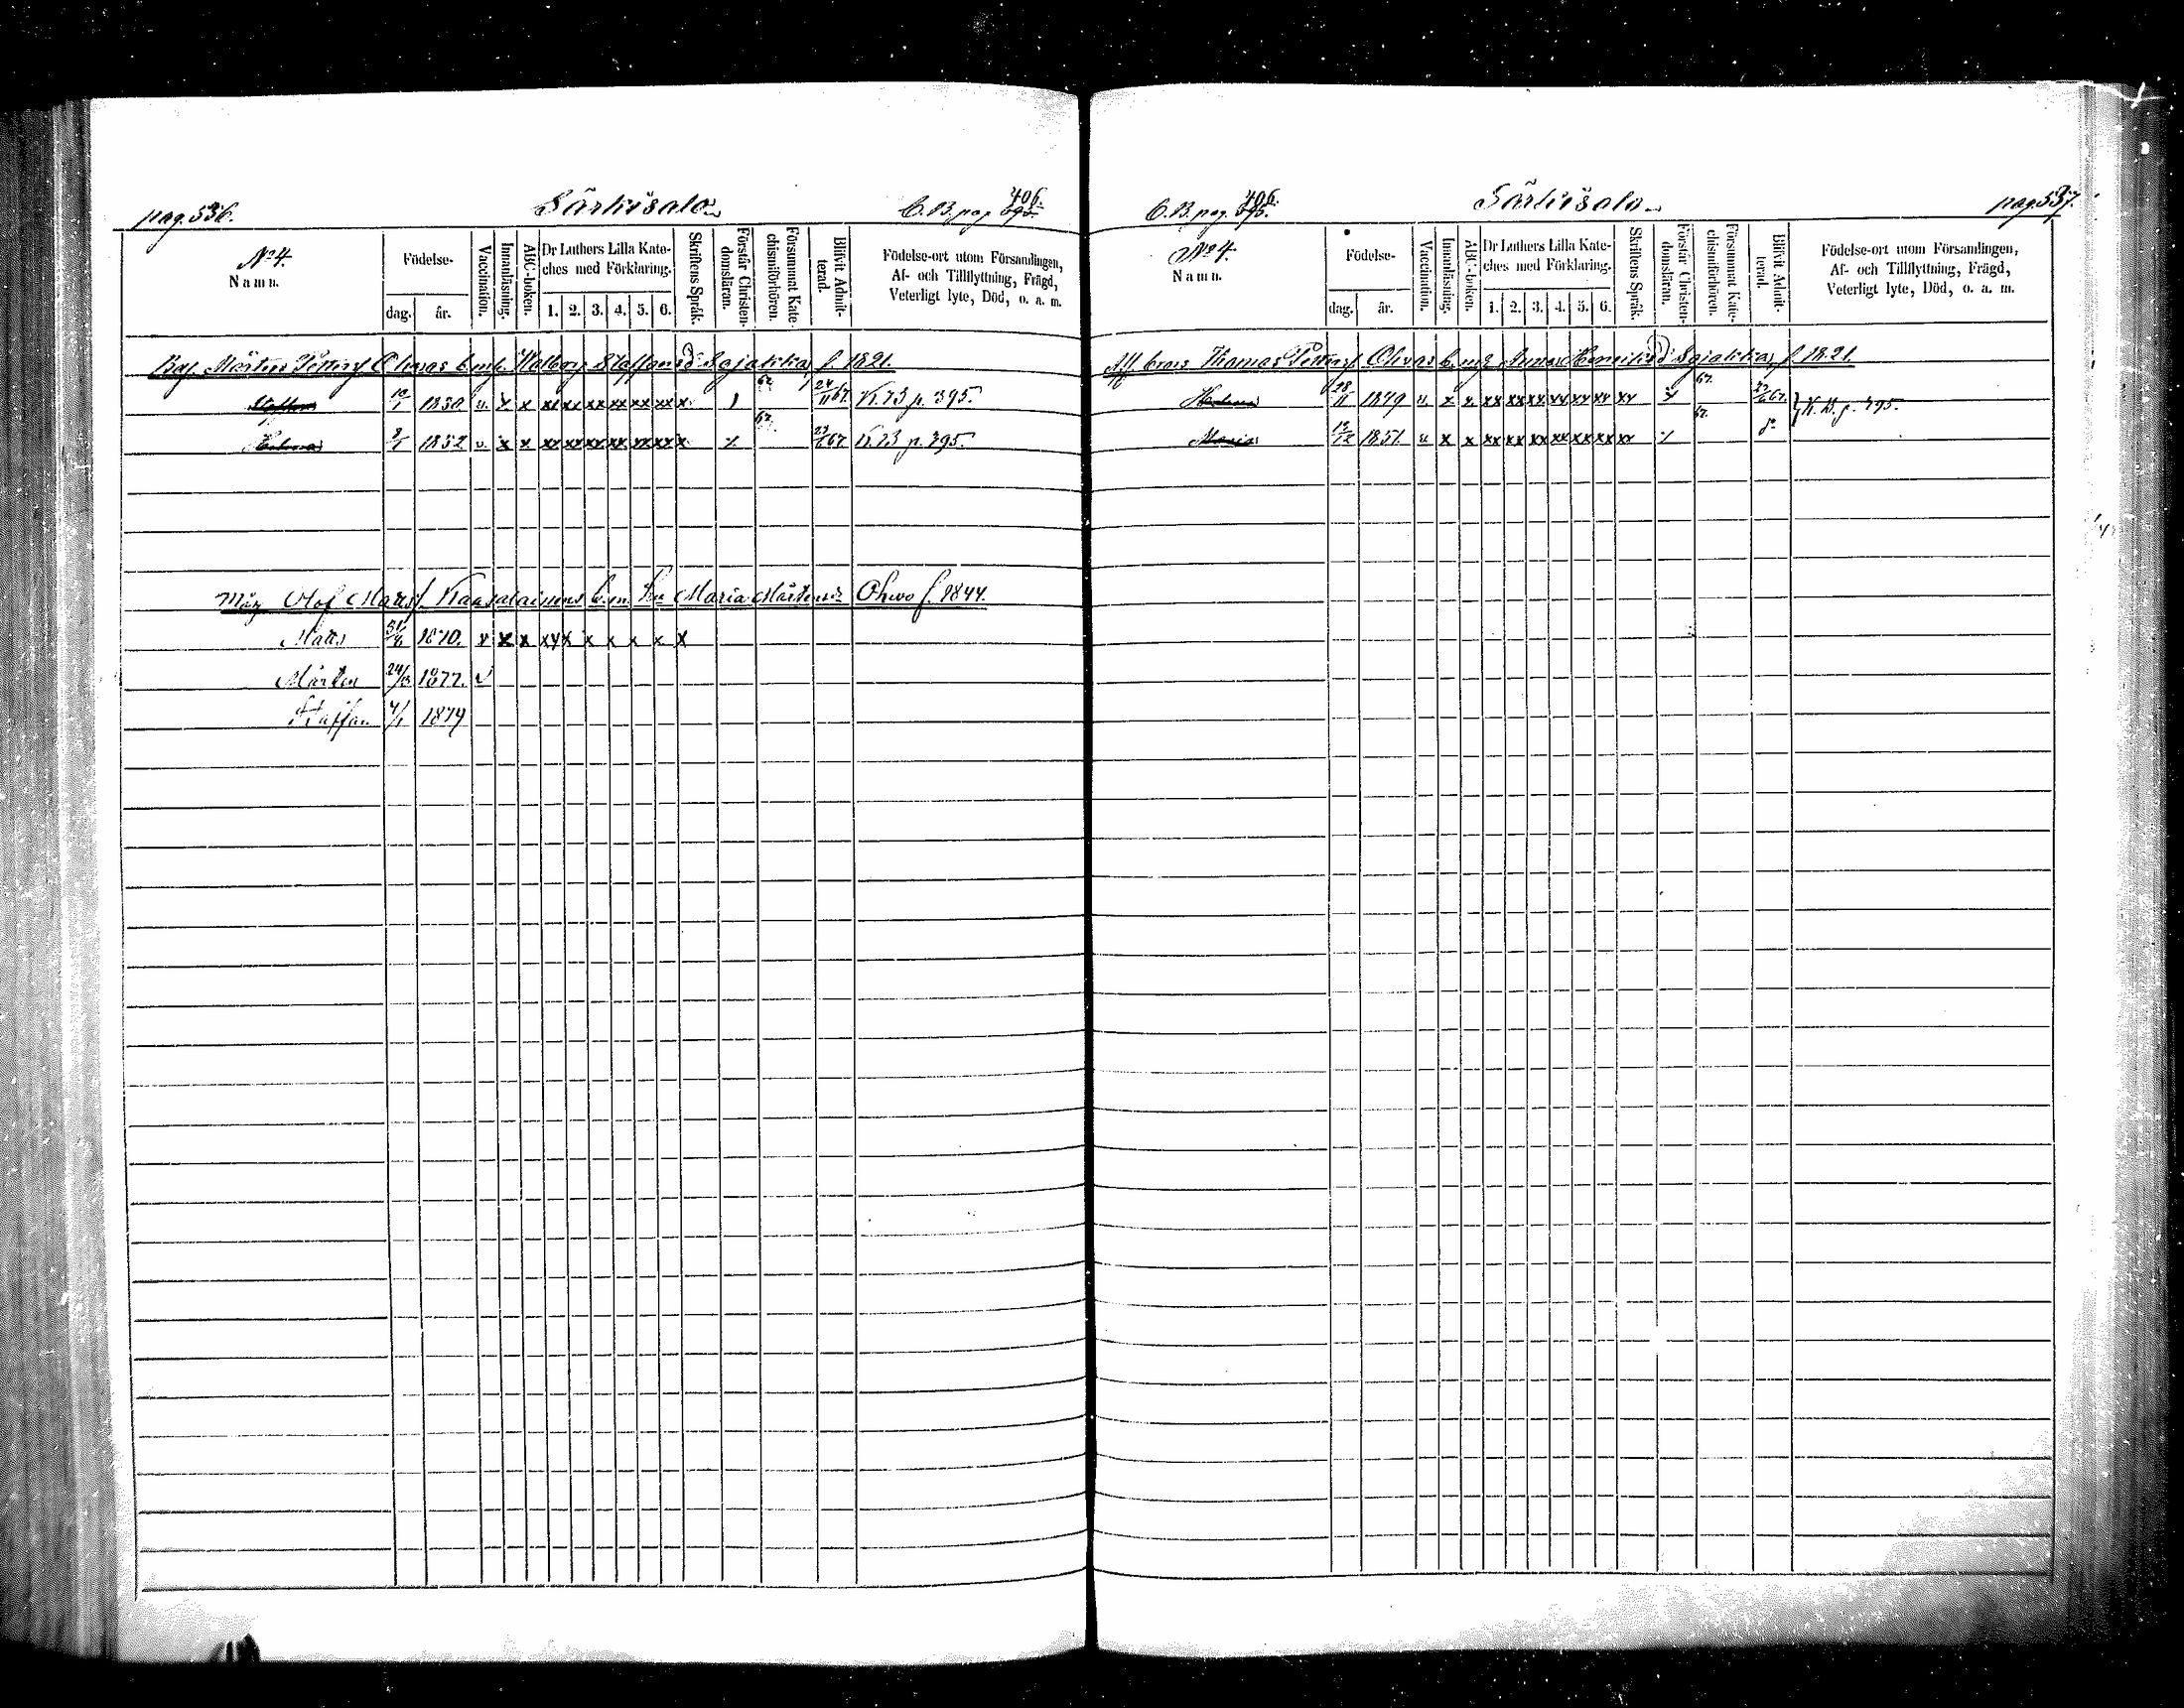 pag. 536. Särkisalo C. B. pag. 406. 395.
No 4.
Namn.
Födelse-
dag. år.
Vaccination.
Innanläsning.
ABC-boken.
Dr Luthers Lilla Kate-
ches med Förklaring.
1. 2. 3. 4. 5. 6.
Skriftens Språk.
Förstår Christen-
domsläran.
Försummat Kate-
chismiförhören.
Blifvit Admit-
terad.
Födelse-ort utom Församlingen,
Af- och Tillflyttning, Frägd,
Veterligt lyte, Död, o. a. m.
Mårten Petterss. Ohvos b. m. h. Walborg Staffansd. Sajakka f. 1821.
Staffan 10/1 1850 v. x x xx xx xx xx xx xx x 67. 24/11 67. K.B p. 395.
Helena 1852 v. x x xx xx xx xx xx xx x 67. 23/6 67 K.B p. 395.
Måg Olof Matts. Kaasalainens b. m. h. Maria Mårtensd. Ohvo f. 1844.
Matts 1870. v x x xx x x x x x x
Mårten 24/3 1877. v
Staffan 4/1 1879
C. B. pag. 406. 395. Särkisalo pag. 537.
No 4.
Namn.
Födelse-
dag. år.
Vaccination.
Innanläsning.
ABC-boken.
Dr Luthers Lilla Kate-
ches med Förklaring.
1. 2. 3. 4. 5. 6.
Skriftens Språk.
Förstår Christen-
domsläran.
Försummat Kate-
chismiförhören.
Blifvit Admit-
terad.
Födelse-ort utom Församlingen,
Af- och Tillflyttning, Frägd,
Veterligt lyte, Död, o. a. m.
Aff. brors Thomas Petterss. Ohvos b. m. h. Anna Henriksd. Sajakka, f. 1821.
Helena 28/11 1849 v x x xx xx xx xx xx xx xx 67. 23/6 67. K. B. p. 395.
Maria 13/12 1851. v x x xx xx xx xx xx xx xx 67. do